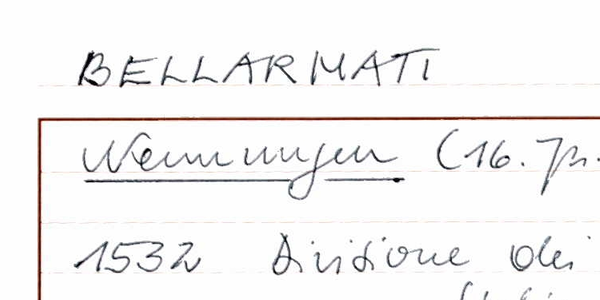 BELLARMATI
Nennungen (16. Jh.
1532 Divisione dei